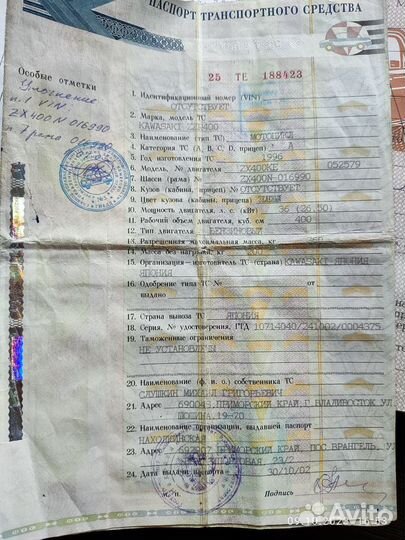 ПАСПОРТ ТРАНСПОРТНОГО СРЕДСТВА
25 ТЕ 188423
Особые отметки
Уточнение
п.1 VIN
ZX400N 016990
1. Идентификационный номер (VIN)
ОТСУТСТВУЕТ
2. Марка, модель ТС
KAWASAKI ZZR400
3. Наименование (тип ТС) МОТОЦИКЛ
4. Категория ТС (A, B, C, D, прицеп) A
5. Год изготовления ТС 1996
6. Модель, № двигателя ZX400KE 052579
7. Шасси (рама) № ZX400N-016990
8. Кузов (кабина, прицеп) № ОТСУТСТВУЕТ
9. Цвет кузова (кабины, прицепа)
10. Мощность двигателя, л. с. (кВт) 36 (26.50)
11. Рабочий объем двигателя, куб. см 400
12. Тип двигателя БЕНЗИНОВЫЙ
13. Разрешенная максимальная масса, кг
14. Масса без нагрузки, кг
15. Организация—изготовитель ТС (страна) KAWASAKI ЯПОНИЯ
ЯПОНИЯ
16. Одобрение типа ТС № от
выдано
17. Страна вывоза ТС ЯПОНИЯ
18. Серия, № удостоверения, ГТД 10714040/241002/0004375
19. Таможенные ограничения
НЕ УСТАНОВЛЕНЫ
20. Наименование (ф. и. о.) собственника ТС
СЛУШКИН МИХАИЛ ГРИГОРЬЕВИЧ
21. Адрес 690048, ПРИМОРСКИЙ КРАЙ, Г ВЛАДИВОСТОК, УЛ
19-70
22. Наименование организации, выдавшей паспорт
НАХОДКИНСКАЯ
23. Адрес 692907 ПРИМОРСКИЙ КРАЙ, ПОС ВРАНГЕЛЬ, У
24. Дата выдачи паспорта 30/10/02
М. п. Подпись
Avito